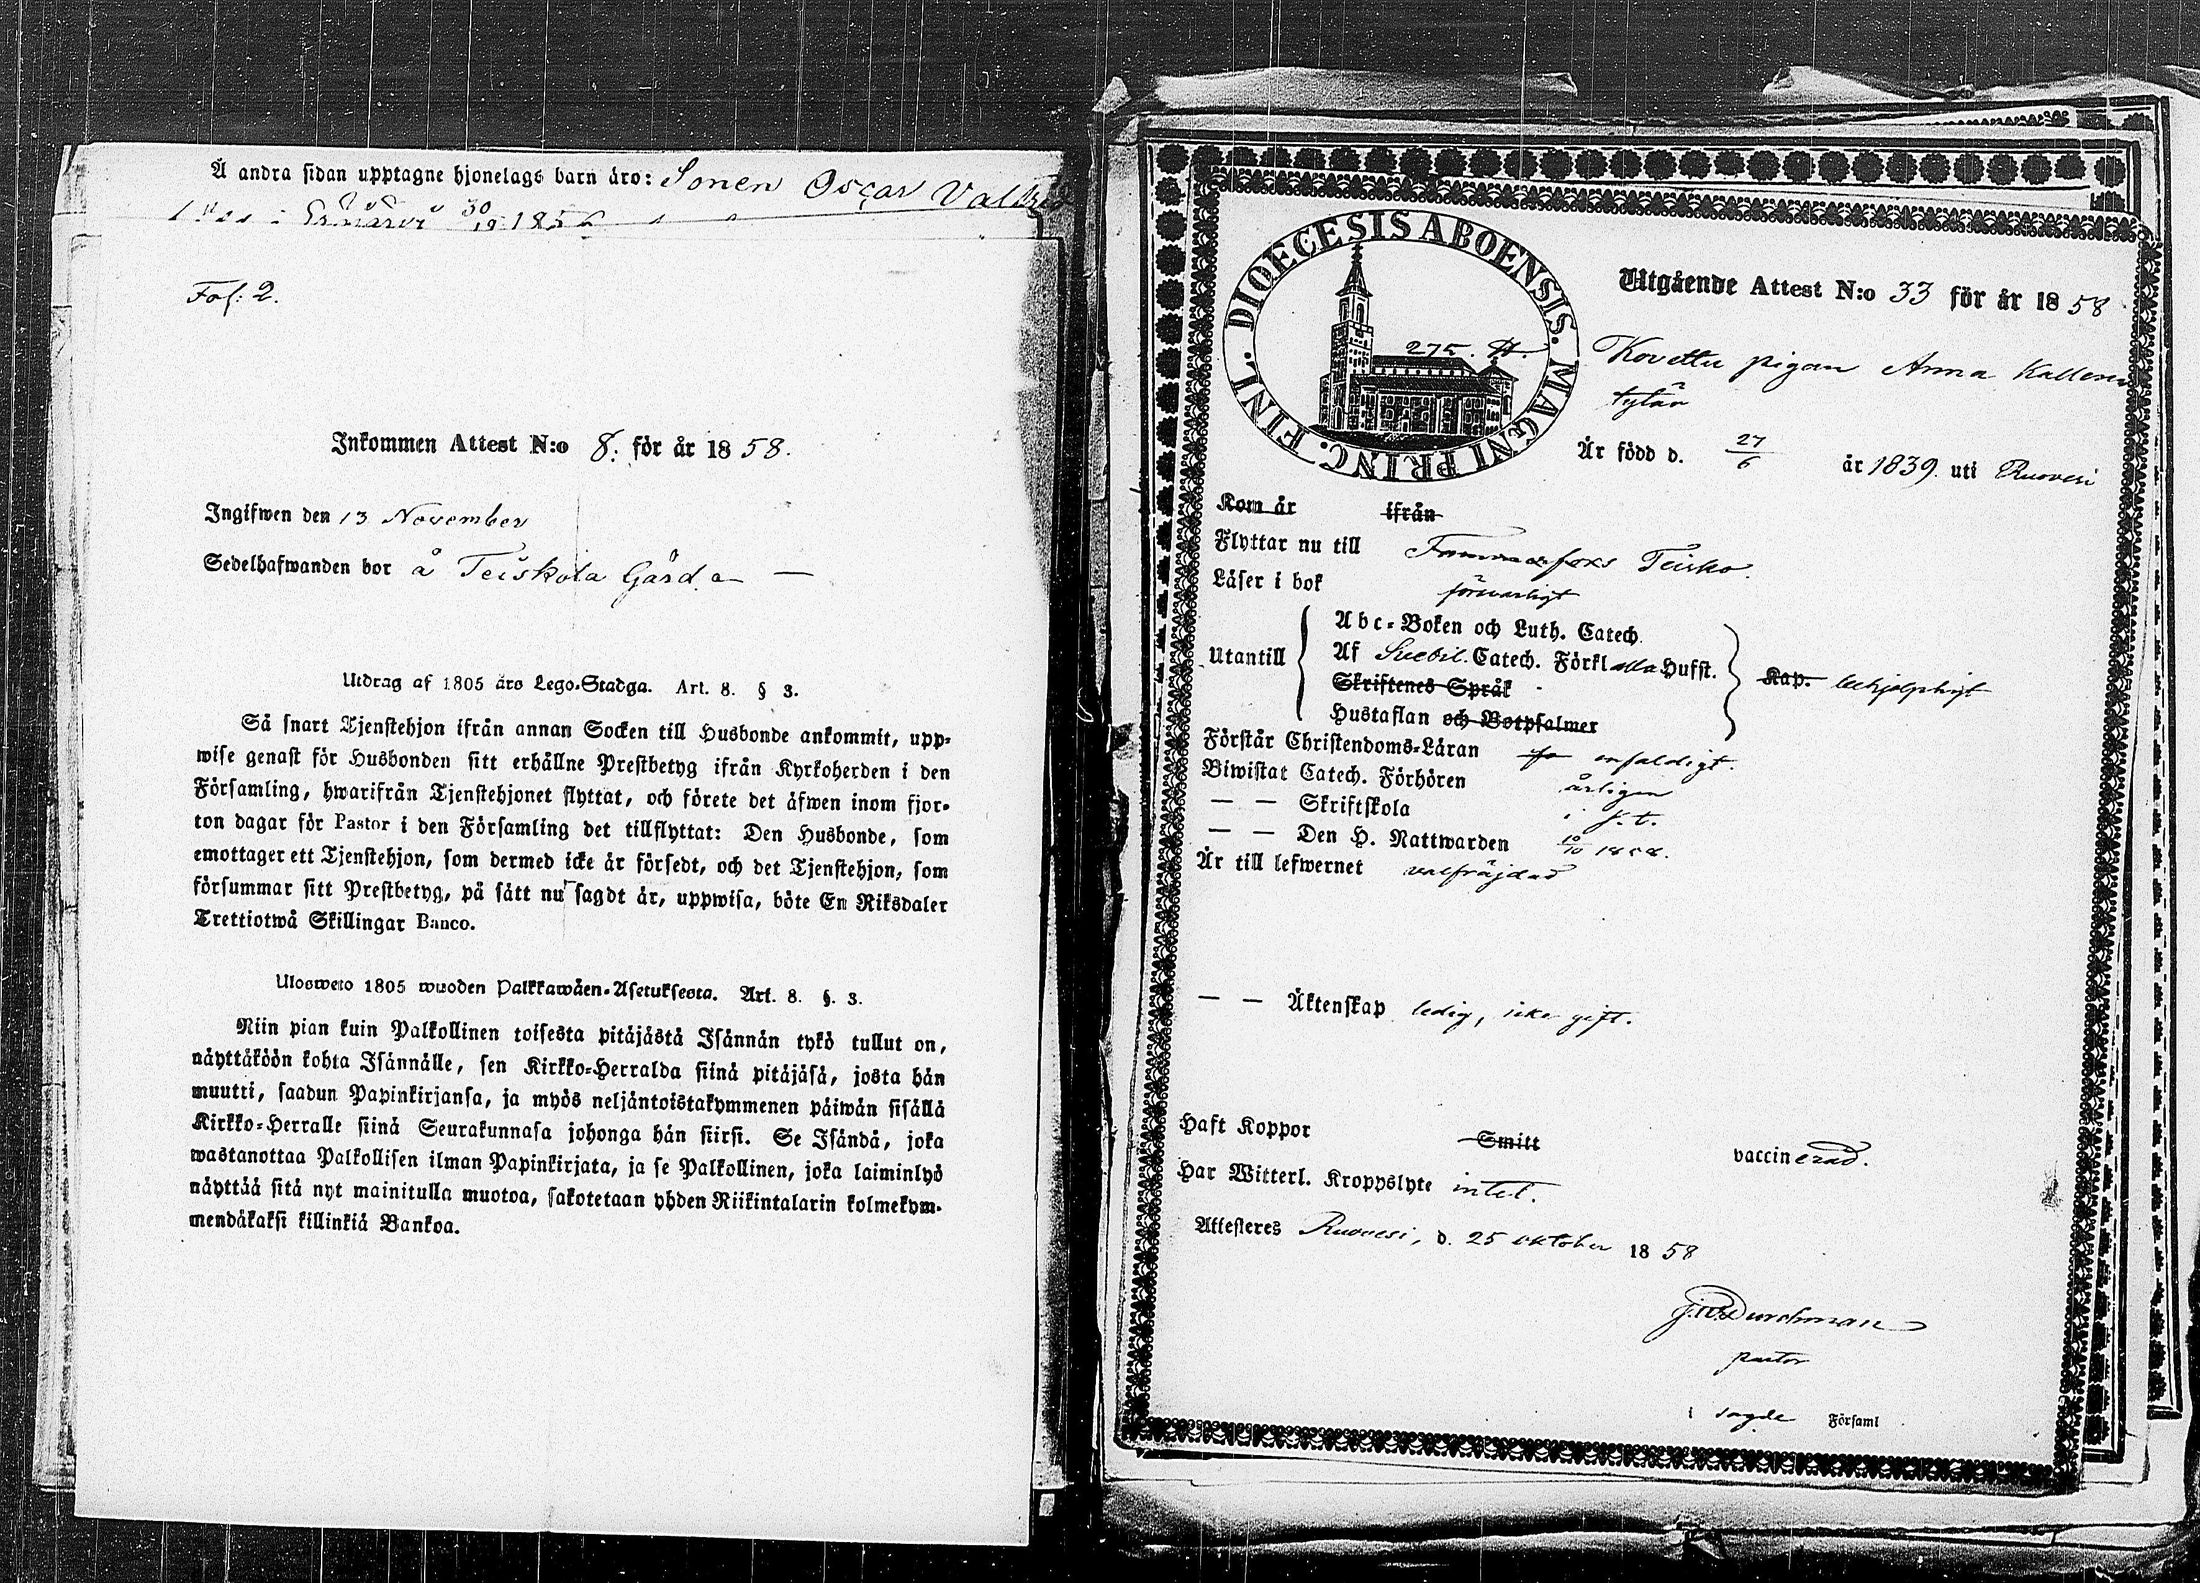 Å andra sidan upptagne hjonelags barn äro: Sonen Oscar
30/19 1856
Fol: 2.
Inkommen Attest N:o 8. för år 1858.
Ingifwen den 13 November
Sedelhafwanden bor å Teiskola Gård
Utdrag af 1805 års Lego-Stadga. Art. 8. § 3.
Så snart Tjenstehjon ifrån annan Socken till Husbonde ankommit, upp-
wise genast för Husbonden sitt erhållne Prestbetyg ifrån Kyrkoherden i den
Församling, hwarifrån Tjenstehjonet flyttat, och förete det äfwen inom fjor-
ton dagar för Pastor i den Församling det tillflyttat: Den Husbonde, som
emottager ett Tjenstehjon, som dermed icke är försedt, och det Tjenstehjon, som
försummar sitt Prestbetyg, på sätt nu sagdt är, uppwisa, böte En Riksdaler
Trettiotwå Skillingar Banco.
Ulosweto 1805 wuoden Palkkawäen-Asetuksesta. Art. 8. §. 3.
Niin pian kuin Palkollinen toisesta pitäjästä Isännän tykö tullut on,
näyttäköön kohta Isännälle, sen Kirkko-Herralda siinä pitäjäsä, josta hän
muutti, saadun Papinkirjansa, ja myös neljäntoistakymmenen päiwän sisällä
Kirkko-Herralle siinä Seurakunnasa johonga hän siirsi. Se Isändä, joka
wastanottaa Palkollisen ilman Papinkirjata, ja se Palkollinen, joka laiminlyö
näyttää sitä nyt mainitulla muotoa, sakotetaan yhden Riikintalarin kolmekym-
mendäkaksi killinkiä Bankoa.
DIOECESIS ABOENSIS. MAGNI PRINC. FINL.
275.
Utgående Attest N:o 33 för år 1858
pigan Anna Kallen
tytär
Är född d. 27/6 år 1839. uti Ruovesi
Kom år ifrån
Flyttar nu till Tammerfors Teisko.
Läser i bok försvarligt
Utantill
Abc-Boken och Luth. Catech.
Af Svebil. Catech. Förkl alla Hufst.
Skriftenes Språk
Hustaflan och Botpsalmer
Kap.
Förstår Christendoms-Läran enfaldigt.
Biwistat Catech. Förhören årligen
— — Skriftskola i s. t.
— — Den H. Nattwarden 10/10 1858.
Är till lefwernet välfräjdad
— — Äktenskap ledig, icke gift.
Haft Koppor Smitt vaccinerad.
Har Witterl. Kroppslyte intet.
Attesteres Ruovesi, d. 25 oktober 1858
Durchman
pastor
i sagde Församl